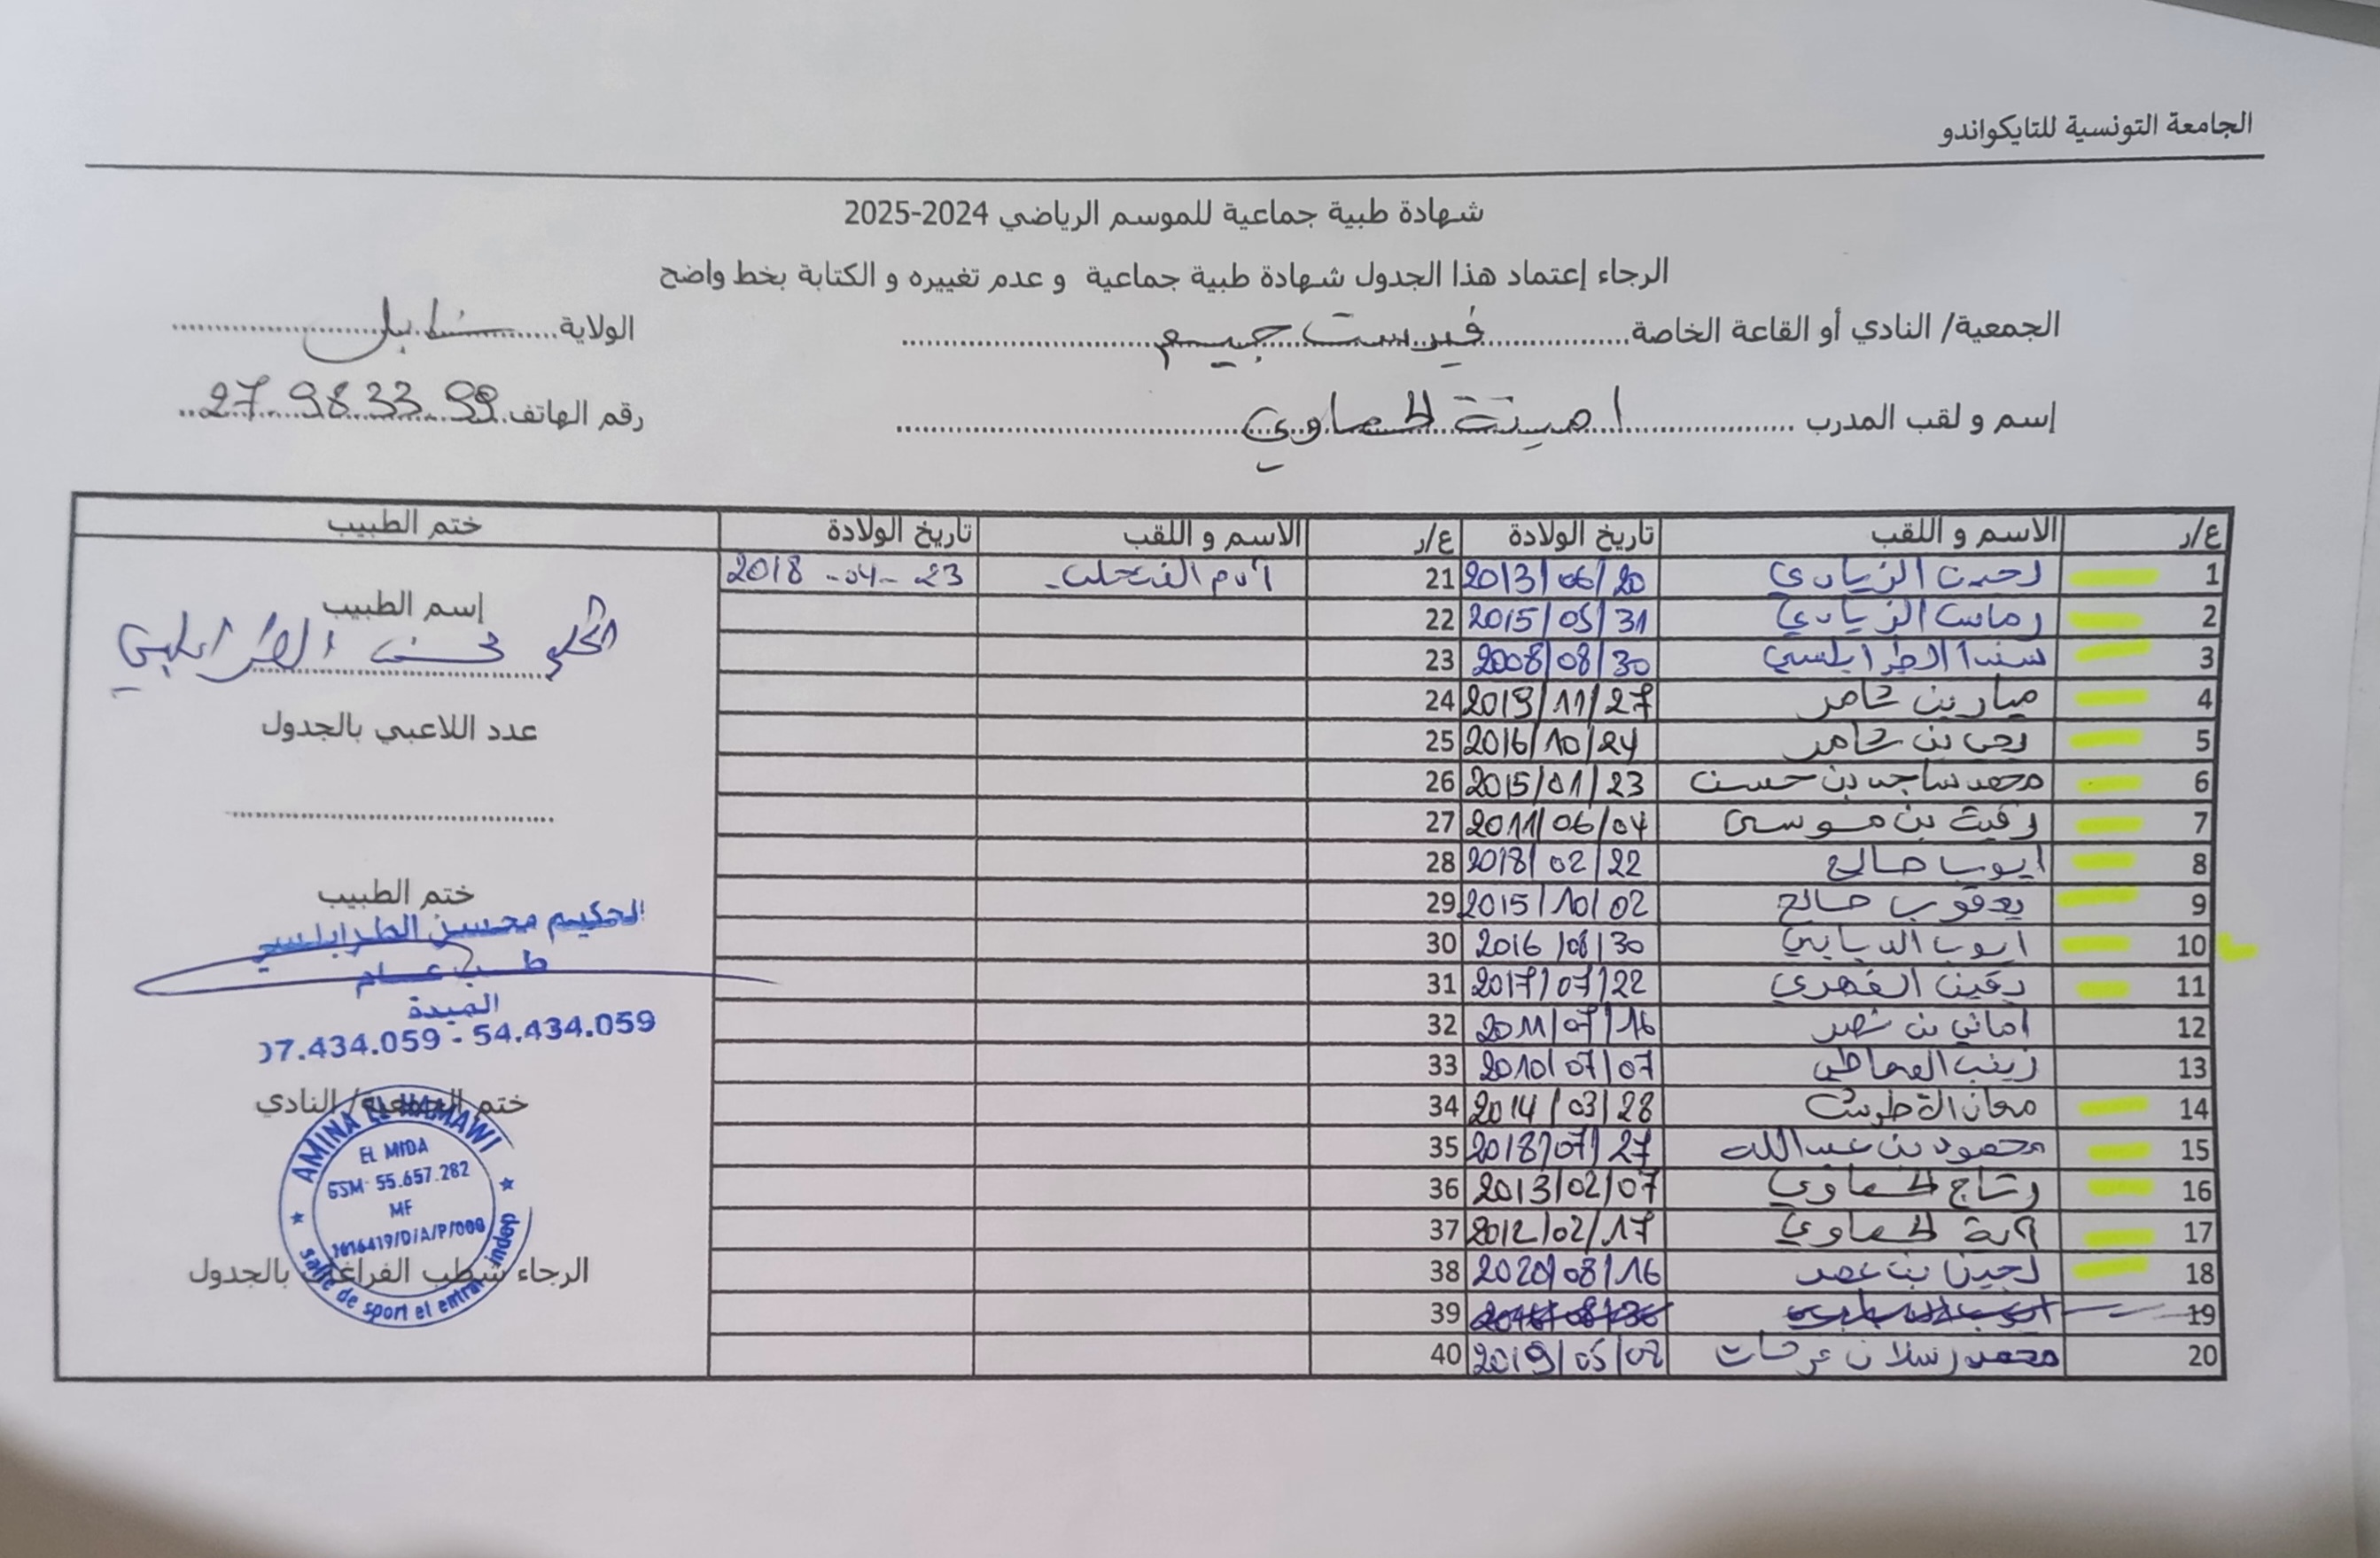 الجامعة التونسية للتايكواندو
شهادة طبية جماعية للموسم الرياضي 2024-2025
الرجاء إعتماد هذا الجدول شهادة طبية جماعية و عدم تغييره و الكتابة بخط واضح
الجمعية/ النادي أو القاعة الخاصة فيرست جيم الولاية نابل
إسم و لقب المدرب امينة الحماوي رقم الهاتف 27 983 399
ع/ر الاسم و اللقب تاريخ الولادة ع/ر الاسم و اللقب تاريخ الولادة ختم الطبيب
1 الزيادي 2013/06/20 21 آدم 2018-04-23
2 الزيادي 2015/05/31 22
3 سندا الطرابلسي 2008/08/30 23
4 ميار بن عامر 2019/11/27 24
5 يحي بن عامر 2016/10/24 25
6 محمد ساجد بن حسن 2015/01/23 26
7 رقية بن موسى 2011/06/04 27
8 ايوب صالح 2018/02/22 28
9 يعقوب صالح 2015/10/02 29
10 ايوب الديابي 2016/08/30 30
11 الفهري 2017/07/22 31
12 اماني بن نصر 2011/07/16 32
13 زينب 2010/07/07 33
14 2014/03/28 34
15 محمود بن عبدالله 2018/07/27 35
16 رتاج الحماوي 2013/02/07 36
17 آية الحماوي 2012/02/17 37
18 لجين بن عمر 2020/08/16 38
19 39
20 محمد رسلان عرفات 2019/05/02 40
إسم الطبيب
الحكيم محسن الطرابلسي
عدد اللاعبي بالجدول
ختم الطبيب
الحكيم محسن الطرابلسي
طب عام
الميدة
97.434.059 - 54.434.059
ختم الجمعية/ النادي
AMINA EL HAMAWI
EL MIDA
GSM: 55.657.282
MF
1616419/D/A/P/000
salle de sport et entrai. indep
الرجاء شطب الفراغات بالجدول